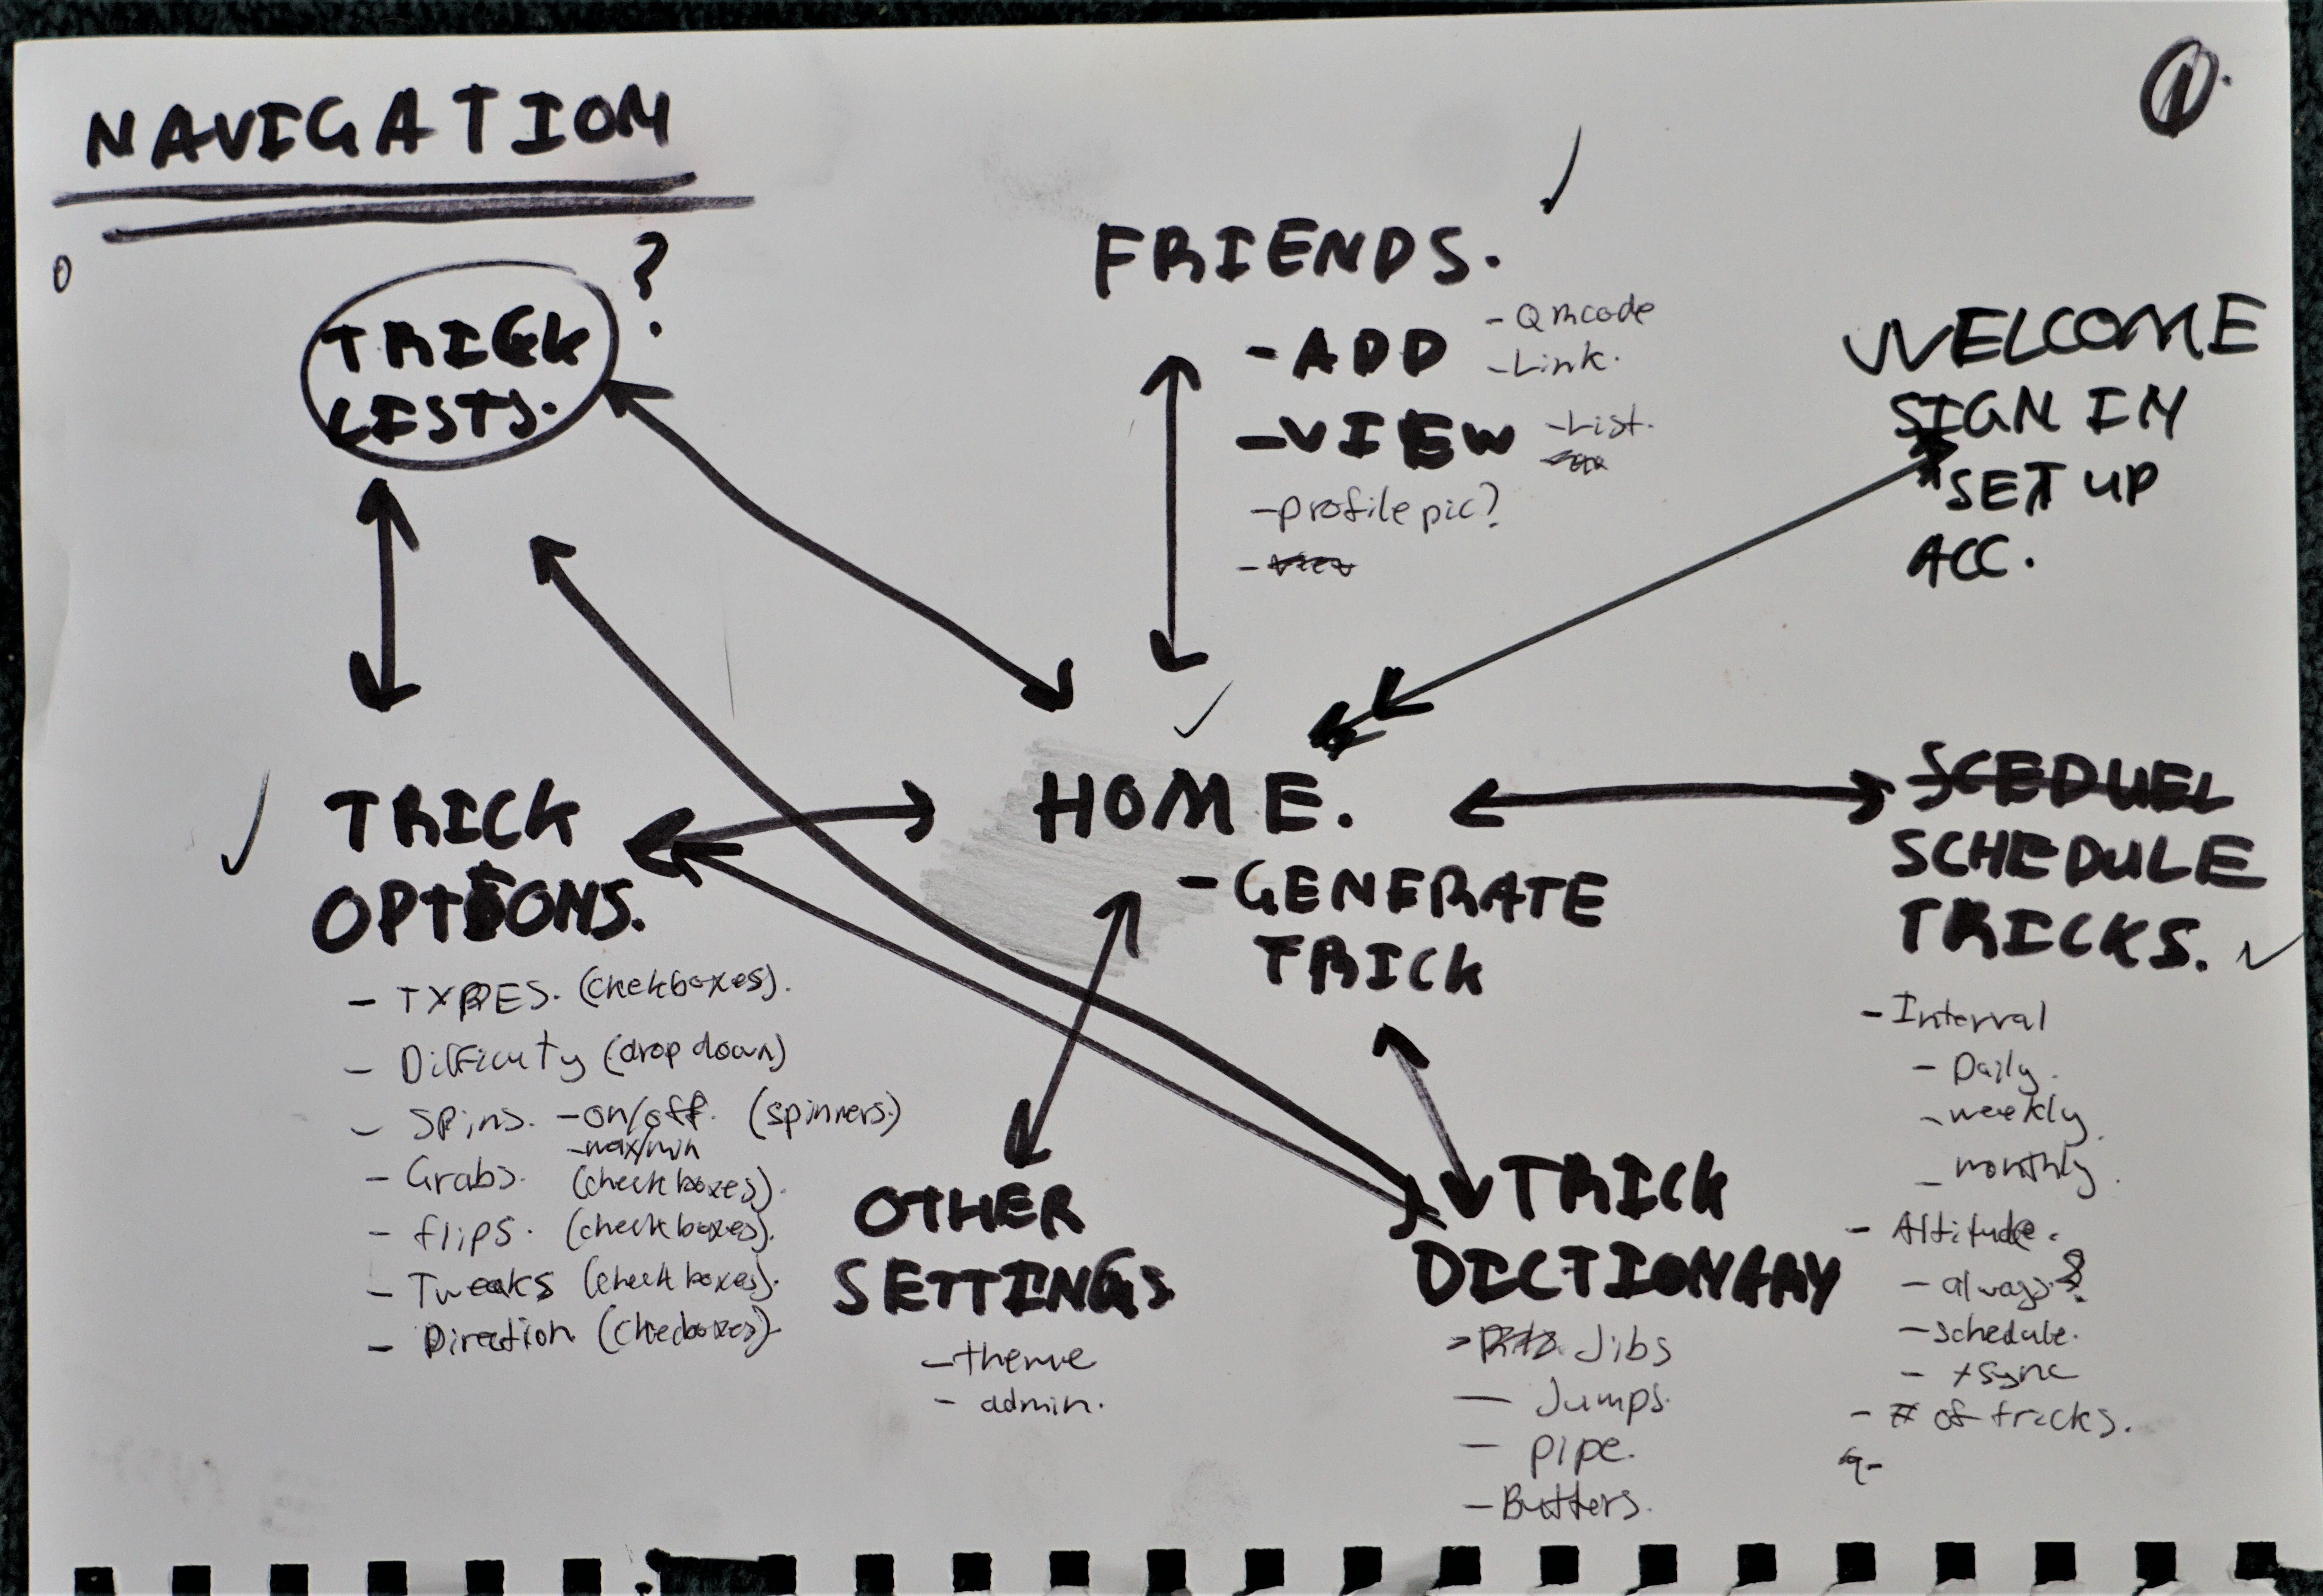 NAVIGATION
TRICK
LISTS.
?
FRIENDS.
- ADD
- QR code
- Link.
- VIEW
- List.
- profile pic?
WELCOME
SIGN IN
SET UP
ACC.
TRICK
OPTIONS.
- TYPES. (chekboxes).
- Difficuty (drop down)
- Spins. - on/off. (spinners.)
- max/min
- Grabs. (checkboxes).
- flips. (checkboxes).
- Tweaks (checkboxes).
- Direction (checboxes).
HOME.
- GENERATE
TRICK
SCEDUEL
SCHEDULE
TRICKS.
- Interval
- Daily.
- weekly.
- monthly.
- Altitude.
- always?
- schedule.
- + sync
- # of tricks.
OTHER
SETTINGS
- theme
- admin.
TRICK
DICTIONARY
- Jibs
- Jumps.
- pipe.
- Butters.